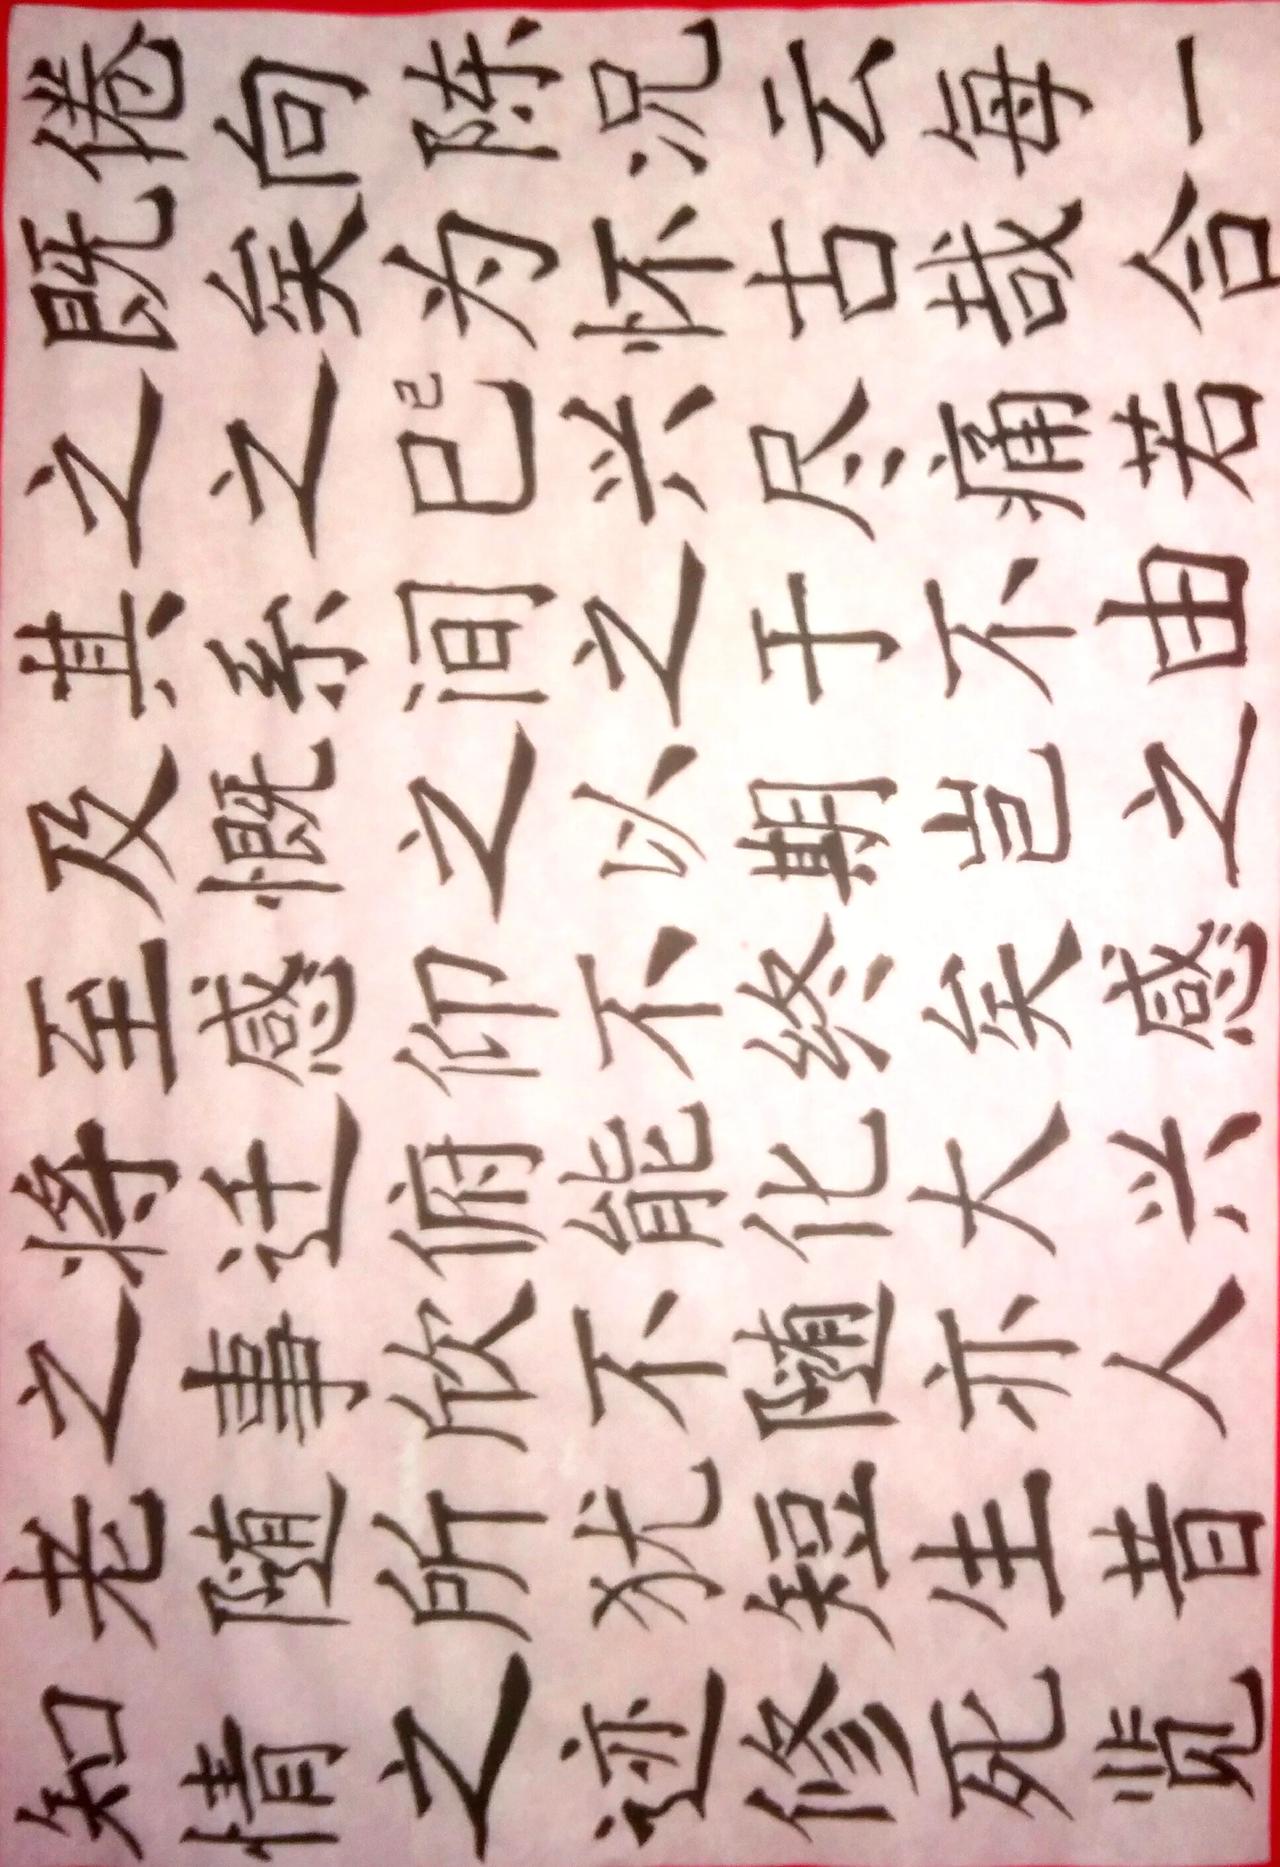 知老之将至及其之既倦
情随事迁感慨系之矣向
之所欣俯仰之间巳已为陈
迹犹不能不以之兴怀况
修短随化终期于尽古云
死生亦大矣岂不痛哉每
览昔人兴感之由若合一